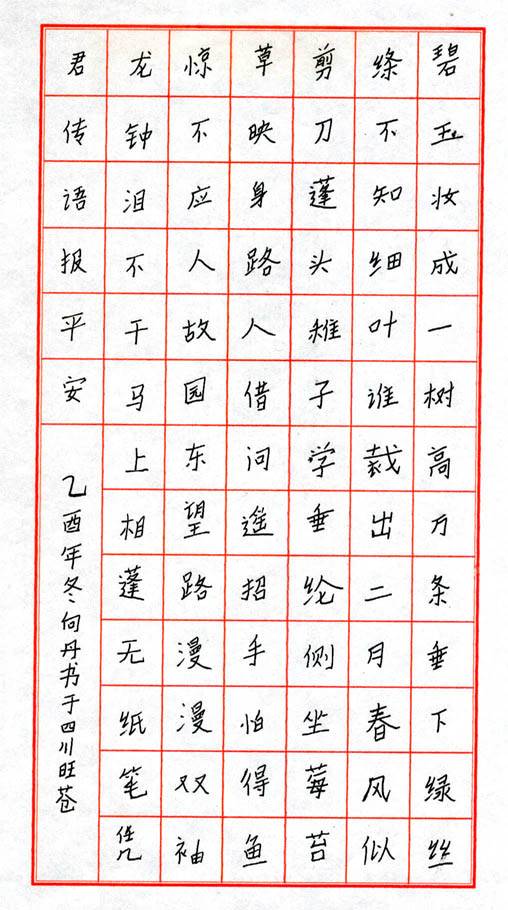 碧玉妆成一树高万条垂下绿丝
绦不知细叶谁裁出二月春风似
剪刀蓬头稚子学垂纶侧坐莓苔
草映身路人借问遥招手怕得鱼
惊不应人故园东望路漫漫双袖
龙钟泪不干马上相蓬无纸笔凭
君传语报平安
乙酉年冬向丹书于四川旺苍